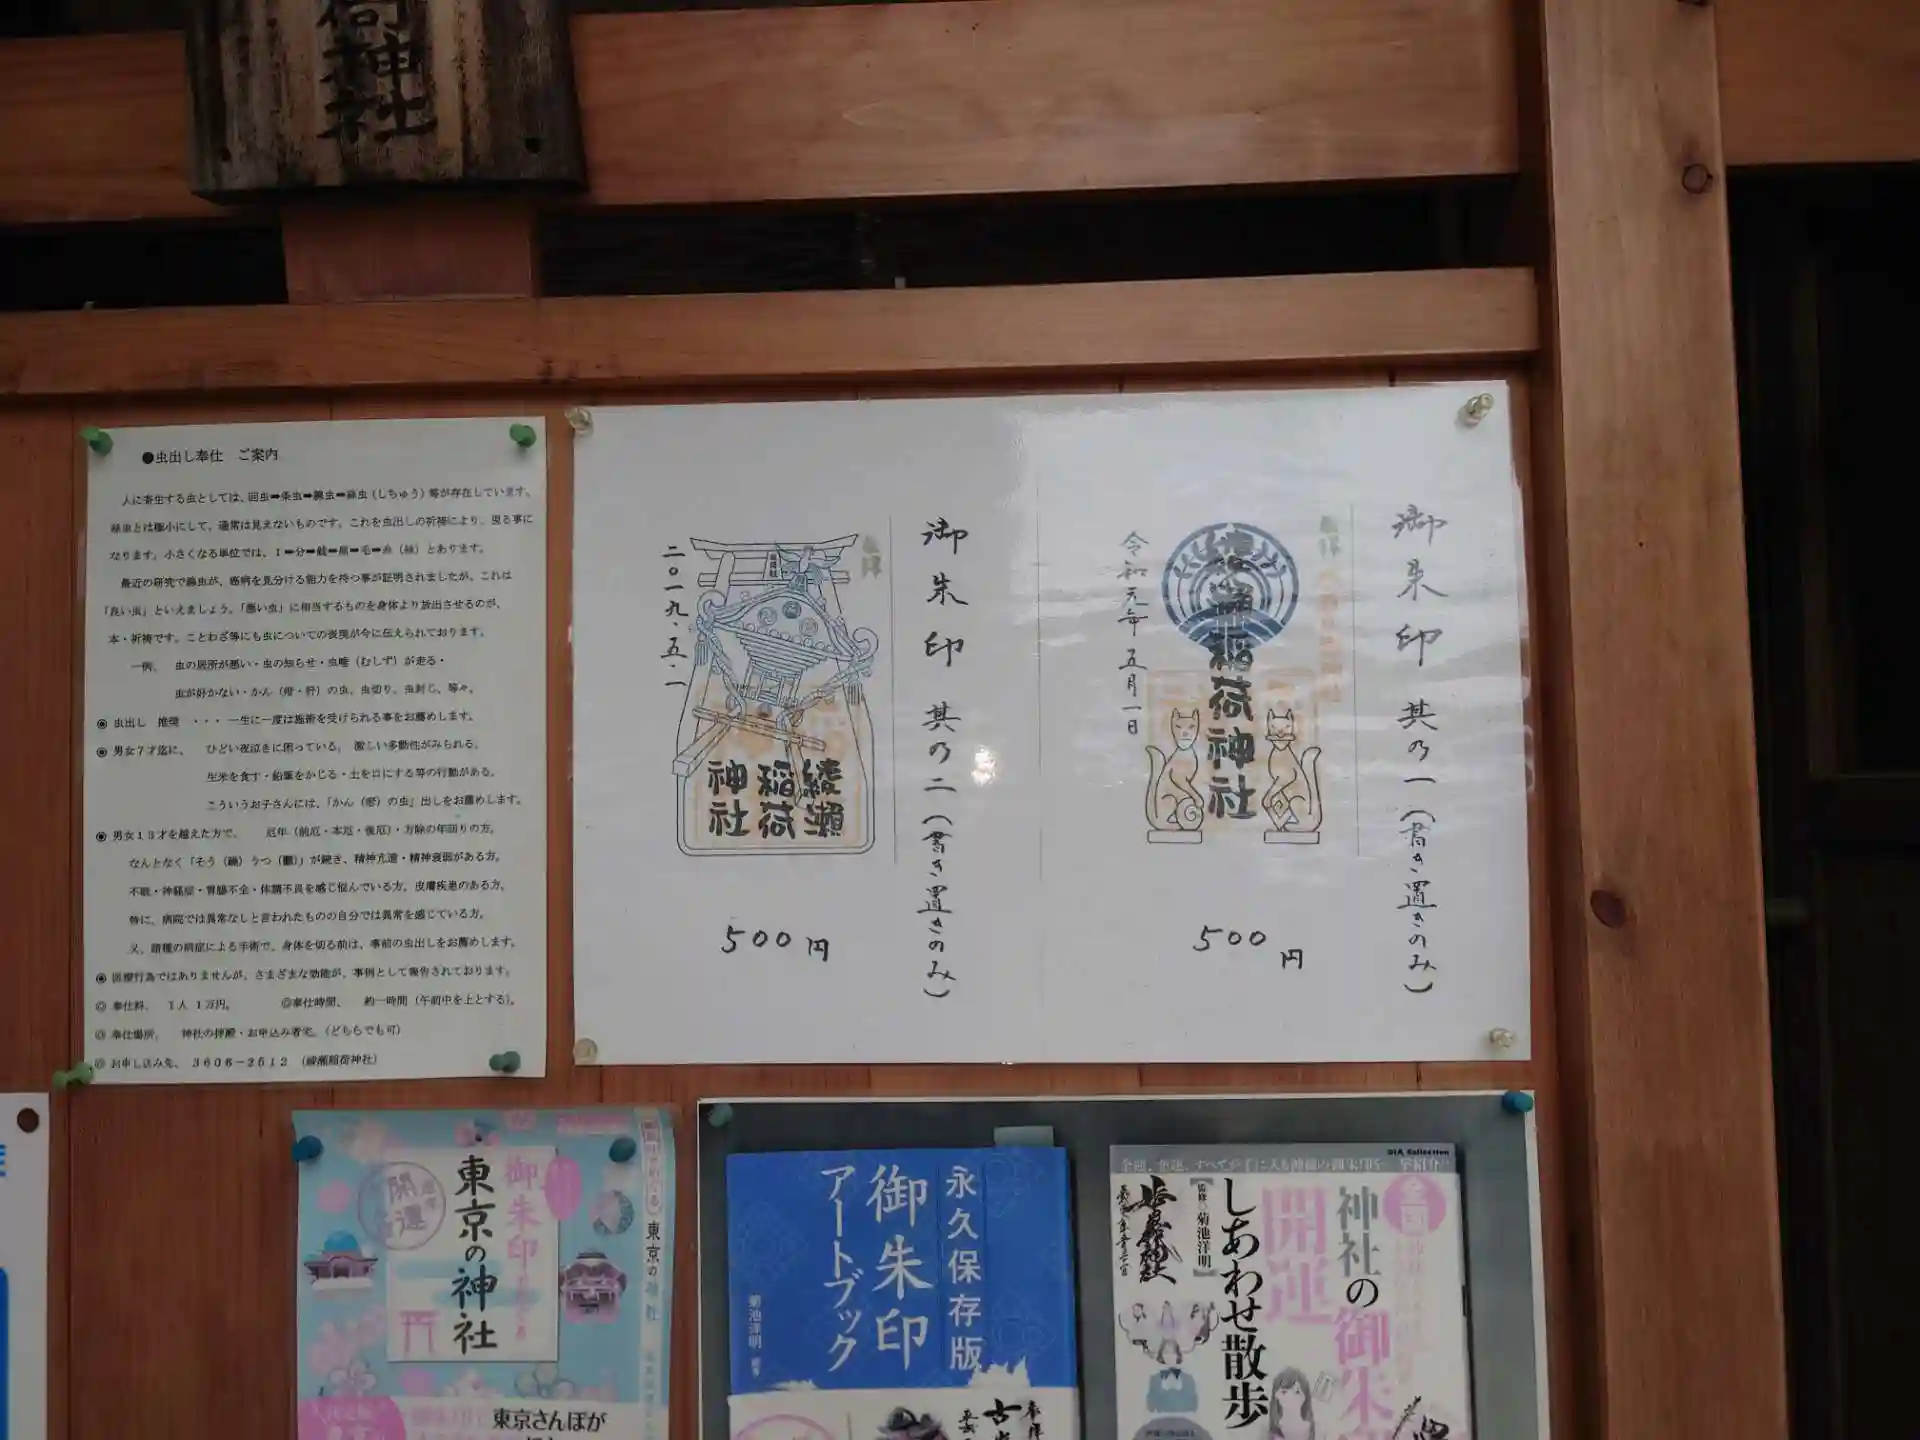 荷神社
●虫出し奉仕　ご案内
人に寄生する虫としては、回虫➡条虫➡蟯虫➡絲虫（しちゅう）等が存在しています。
絲虫とは極小にして、通常は見えないものです。これを虫出しの祈祷により、見る事に
なります。小さくなる単位では、1➡分➡厘➡毛➡糸（絲）とあります。
最近の研究で線虫が、癌病を見分ける能力を持つ事が証明されましたが、これは
「良い虫」といえましょう。「悪い虫」に相当するものを身体より放出させるのが、
本・祈祷です。ことわざ等にも虫についての表現が今に伝えられております。
一例、　虫の居所が悪い・虫の知らせ・虫唾（むしず）が走る・
虫が好かない・かん（疳・肝）の虫、虫切り、虫封じ、等々。
◉ 虫出し　推奨　・・・一生に一度は施術を受けられる事をお薦めします。
◉ 男女7才迄に、　ひどい夜泣きに困っている。　激しい多動性がみられる。
生米を食す・鉛筆をかじる・土を口にする等の行動がある。
こういうお子さんには、「かん（疳）の虫」出しをお薦めします。
◉ 男女13才を越えた方で、　厄年（前厄・本厄・後厄）・方除の年回りの方。
なんとなく「そう（躁）うつ（鬱）」が続き、精神亢進・精神衰弱がある方。
不眠・神経症・胃腸不全・体調不良を感じ悩んでいる方。皮膚疾患のある方。
特に、病院では異常なしと言われたものの自分では異常を感じている方。
又、諸種の病症による手術で、身体を切る前は、事前の虫出しをお薦めします。
◉ 医療行為ではありませんが、さまざまな効能が、事例として報告されております。
◎ 奉仕料、　1人 1万円。　◎奉仕時間、　約一時間（午前中を上とする）。
◎ 奉仕場所、　神社の拝殿・お申込み者宅。（どちらでも可）
◎ お申し込み先、　3606－2512　（綾瀬稲荷神社）
御朱印　其の一（書き置きのみ）
奉拝
綾瀬稲荷神社
令和元年五月一日
500円
御朱印　其の二（書き置きのみ）
奉拝
綾瀬
稲荷
神社
二〇一九、五、一
500円
御朱印
東京の神社
開運
東京の神社
東京さんぽが
永久保存版
御朱印
アートブック
菊池洋明
DIA Collection
全国
神社の御朱
開運
しあわせ散歩
【監修◎菊池洋明】